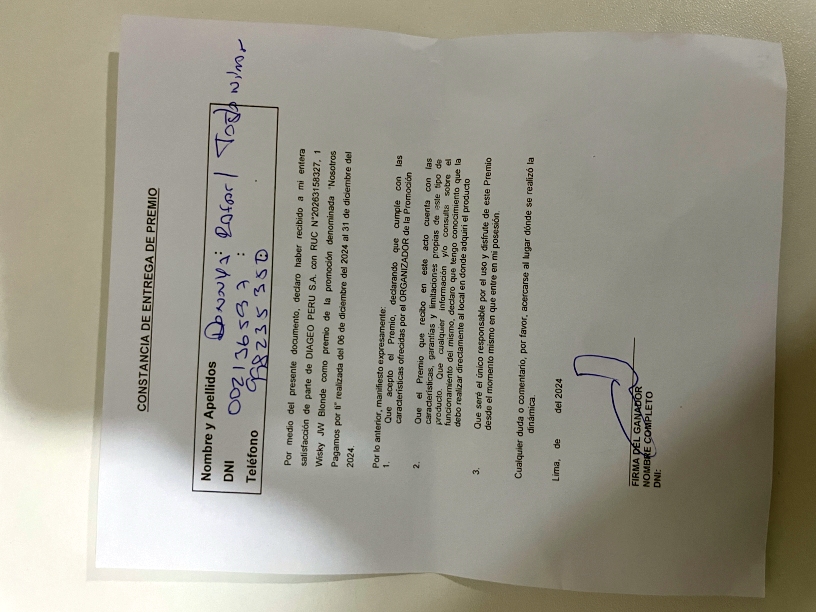 CONSTANCIA DE ENTREGA DE PREMIO
Nombre y Apellidos Rafael
DNI 002136597 :
Teléfono 998235350
Por medio del presente documento, declaro haber recibido a mi entera
satisfacción de parte de DIAGEO PERU S.A. con RUC N°20263158327, 1
Wisky JW Blonde como premio de la promoción denominada "Nosotros
Pagamos por ti" realizada del 06 de diciembre del 2024 al 31 de diciembre del
2024.
Por lo anterior, manifiesto expresamente:
1. Que acepto el Premio, declarando que cumple con las
características ofrecidas por el ORGANIZADOR de la Promoción
2. Que el Premio que recibo en este acto cuenta con las
características, garantías y limitaciones propias de este tipo de
producto. Que cualquier información y/o consulta sobre el
funcionamiento del mismo, declaro que tengo conocimiento que la
debo realizar directamente al local en donde adquirí el producto
3. Que seré el único responsable por el uso y disfrute de este Premio
desde el momento mismo en que entre en mi posesión.
Cualquier duda o comentario, por favor, acercarse al lugar dónde se realizó la
dinámica.
Lima, de del 2024
FIRMA DEL GANADOR
NOMBRE COMPLETO
DNI: